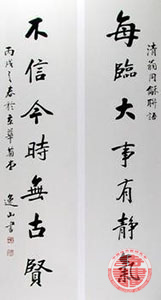 清翁同龢聯語
每臨大事有靜氣
不信今時無古賢
丙戌之春於京華菊堂
逸山書